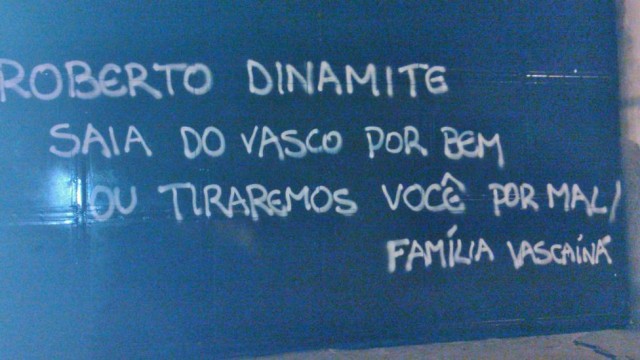 ROBERTO DINAMITE
SAIA DO VASCO POR BEM
OU TIRAREMOS VOCÊ POR MAL/
FAMÍLIA VASCAÍNA